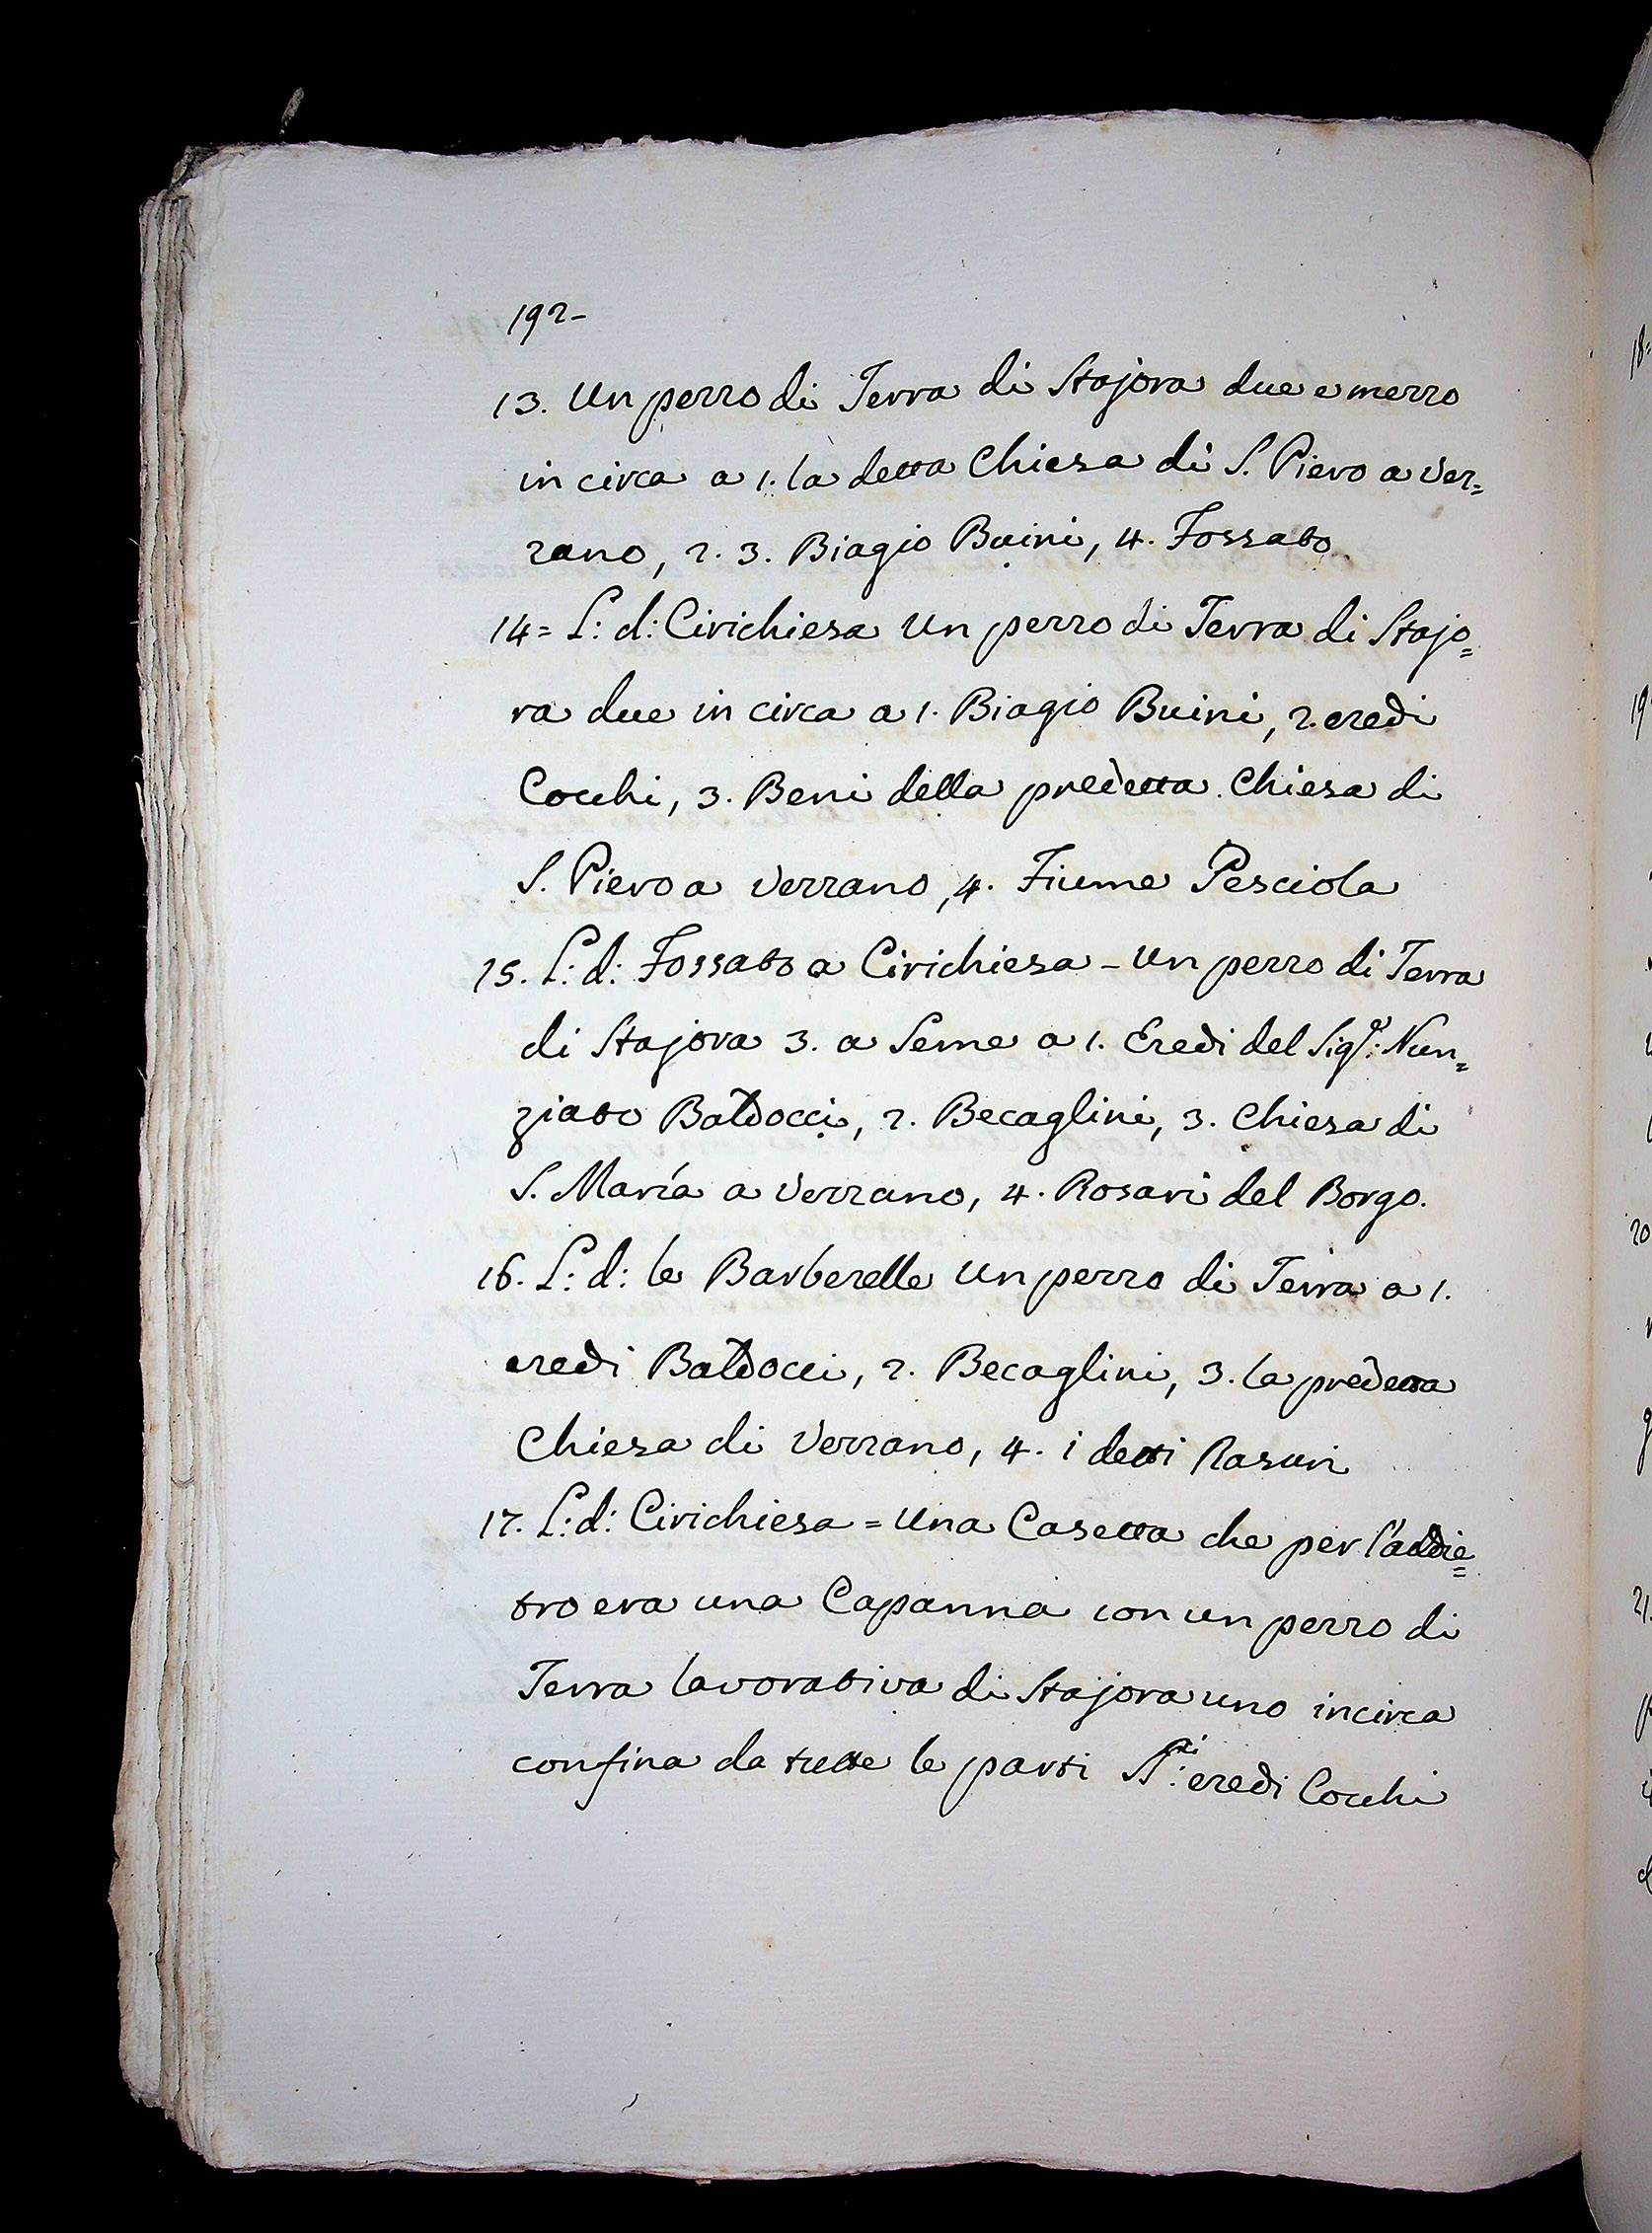 192-
13. Un pezzo di Terra di Stajora due e mezzo
in circa a 1. la detta Chiesa di S. Piero a Ver=
zano, 2. 3. Biagio Buini, 4. Fossato
14= L: d: Cirichiesa Un pezzo di Terra di Stajo=
ra due in circa a 1. Biagio Buini, 2. eredi
Cocchi, 3. Beni della predetta Chiesa di
S. Piero a Verzano, 4. Fiume Pesciola
15. L: d: Fossato a Cirichiesa - Un pezzo di Terra
di Stajora 3. a Seme a 1. Eredi del Sig.r: Nun=
ziato Baldocci, 2. Becaglini, 3. Chiesa di
S. María a Verzano, 4. Rosari del Borgo.
16. L: d: le Barberelle Un pezzo di Terra a 1.
eredi Baldocci, 2. Becaglini, 3. la predetta
Chiesa di Verzano, 4. i detti
17. L: d: Cirichiesa = Una Casetta che per l'addie=
tro era una Capanna con un pezzo di
Terra lavorativa di Stajora uno incirca
confina da tutte le parti eredi Cocchi